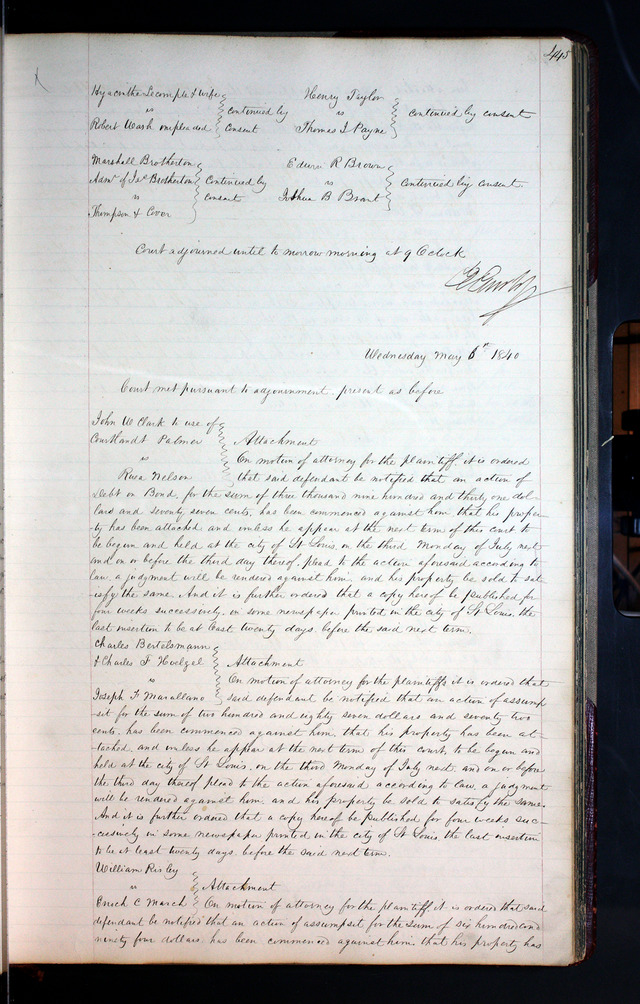 445
Hyacinthe Lecompte & wife
vs
Robert Wash impleaded
continued by
consent
Henry Taylor
vs
Thomas J Payne
continued by consent
Marshall Brotherton
Adm^r of Ja^s Brotherton
vs
Thompson & Cover
Continued by
consent
Edwin R Brown
vs
Joshua B Brant
continued by consent.
Court adjourned until to morrow morning at 9 O Clock
Wednesday May 6^th 1840
Court met pursuant to adjournment. present as before
John W Clark to use of
Courtlandt Palmer
vs
Nelson
Attachment
On motion of attorney for the plaintiff, it is ordered
that said defendant be notified that an action of
Debt on Bond, for the sum of three thousand nine hundred and thirty one dol-
lars and seventy seven cents, has been commenced against him that his proper-
ty has been attached and unless he appear at the next term of this court to
be begun and held at the city of St Louis, on the third Monday of July next
and on or before the third day thereof, plead to the action aforesaid according to
law, a judgment will be rendered against him, and his property be sold to sat-
isfy the same. And it is further ordered that a copy hereof be published for
four weeks successively, in some newspaper printed in the city of St Louis, the
last insertion to be at least twenty days before the said next term.
Charles Bertelsmann
& Charles F Hoelzel
vs
Joseph F Marallano
Attachment
On motion of attorney for the plaintiffs it is ordered that
said defendant be notified that an action of assump-
sit for the sum of two hundred and eighty seven dollars and seventy two
cents, has been commenced against him, that his property has been at-
tached, and unless he appear at the next term of this court, to be begun and
held at the city of St Louis, on the third Monday of July next, and on or before
the third day thereof plead to the action aforesaid according to law, a judgment
will be rendered against him and his property be sold to satisfy the same.
And it is further ordered that a copy hereof be published for four weeks suc-
cessively in some newspaper printed in the city of St Louis, the last insertion
to be at least twenty days before the said next term.
William Risley
vs
Enoch C March
Attachment
On motion of attorney for the plaintiff, it is ordered that said
defendant be notified that an action of assumpsit for the sum of six hundred and
ninety four dollars has been commenced against him, that his property has